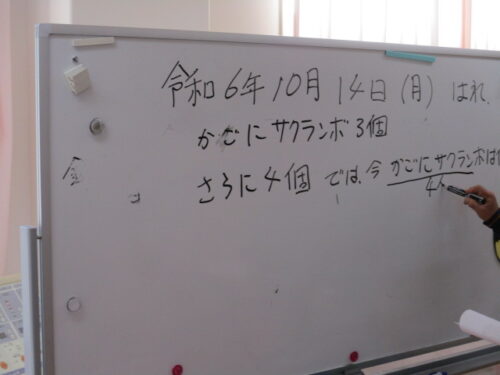 令和6年10月14日(月) はれ、
かごにサクランボ3個
さらに4個 では、今 かごにサクランボは